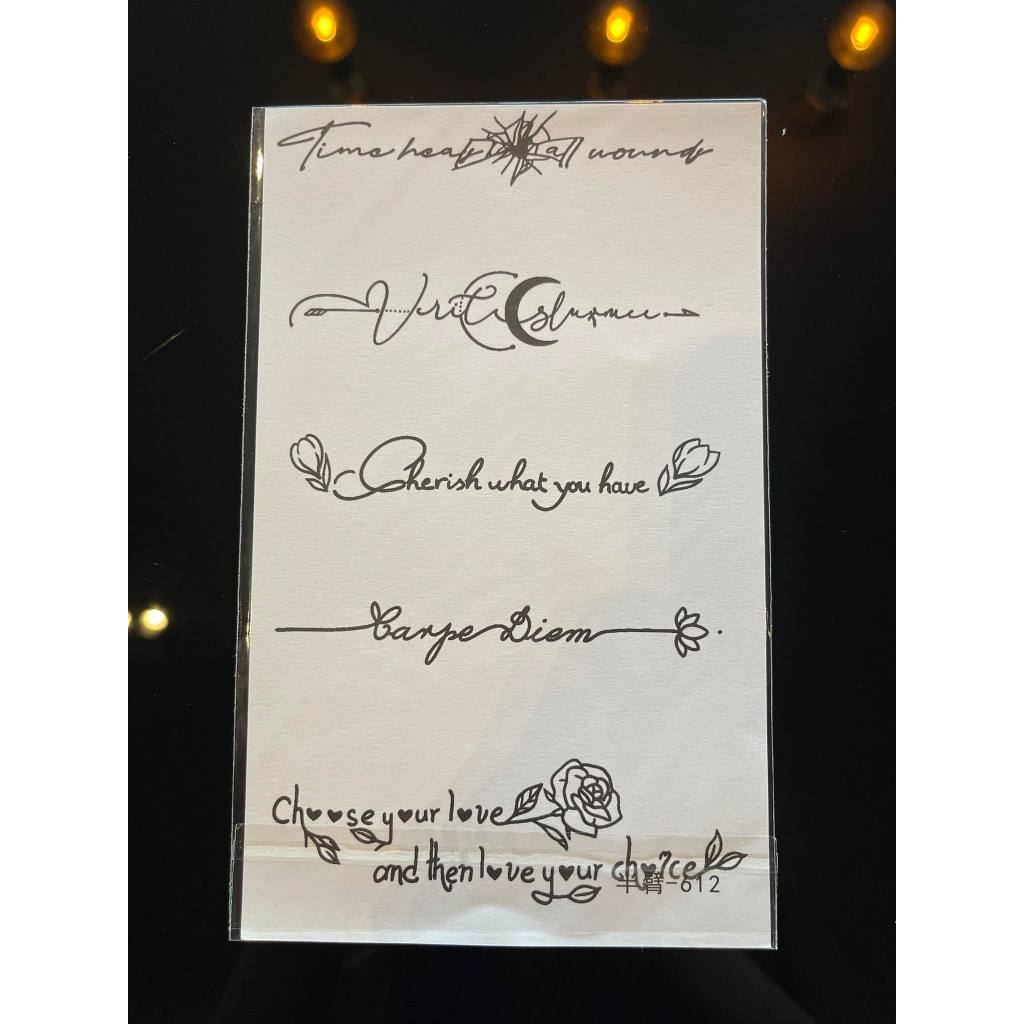 Time heals all wound
Cherish what you have
Carpe Diem
Choose your love
and then love your choice
半臂-612